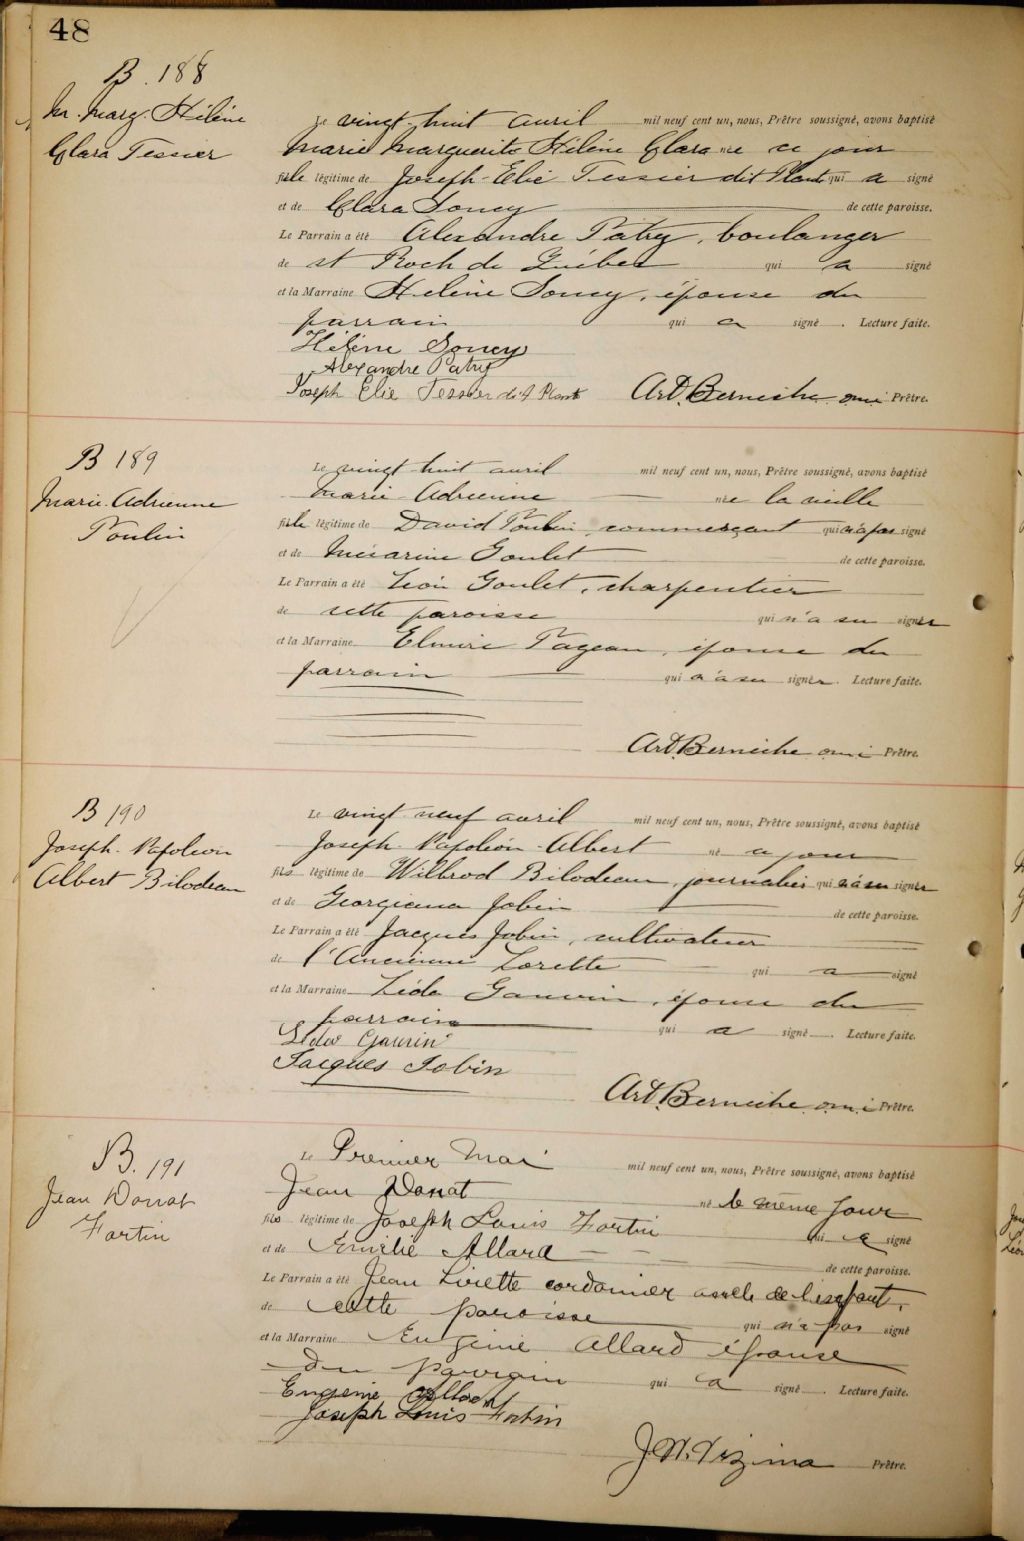 48
B. 188
M. Marg. Hélène
Clara Tessier
Le vingt-huit avril mil neuf cent un, nous, Prêtre soussigné, avons baptisé
Marie Marguerite Hélène Clara née ce jour
fille légitime de Joseph-Elie Tessier dit Plante qui a signé
et de Clara Soucy de cette paroisse.
Le Parrain a été Alexandre Patry, boulanger
de st Roch de Québec qui a signé
et la Marraine Hélène Soucy, épouse du
parrain qui a signé. Lecture faite.
Hélène Soucy
Alexandre Patry
Joseph Elie Tessier dit Plante
Art. Berneche o.m.i Prêtre.
B 189
Marie-Adrienne
Poulin
Le vingt huit avril mil neuf cent un, nous, Prêtre soussigné, avons baptisé
Marie-Adrienne née la veille
fille légitime de David Poulin, commerçant qui n'a pas signé
et de Goulet de cette paroisse.
Le Parrain a été Léon Goulet, charpentier
de cette paroisse qui n'a su signer
et la Marraine Elmire Pageau, épouse du
parrain qui n'a su signer. Lecture faite.
Art. Berneche o.m.i Prêtre.
B 190
Joseph-Napoléon
Albert Bilodeau
Le vingt-neuf avril mil neuf cent un, nous, Prêtre soussigné, avons baptisé
Joseph-Napoléon-Albert né ce jour
fils légitime de Wilbrod Bilodeau, journalier qui n'a su signer
et de Georgiana Jobin de cette paroisse.
Le Parrain a été Jacques Jobin, cultivateur
de l'Ancienne Lorette qui a signé
et la Marraine Léda Gauvin, épouse du
parrain qui a signé. Lecture faite.
Léda Gauvin
Jacques Jobin
Art. Berneche o.m.i Prêtre.
B. 191
Jean Donat
Fortin
Le Premier Mai mil neuf cent un, nous, Prêtre soussigné, avons baptisé
Jean Donat né le même jour
fils légitime de Joseph Louis Fortin qui a signé
et de Emilie Allard de cette paroisse.
Le Parrain a été Jean Lirette cordonnier oncle de l'enfant,
de cette paroisse qui n'a pas signé
et la Marraine Eugénie Allard épouse
du parrain qui a signé. Lecture faite.
Eugénie Allard
Joseph Louis Fortin
J. W. Vézina Prêtre.